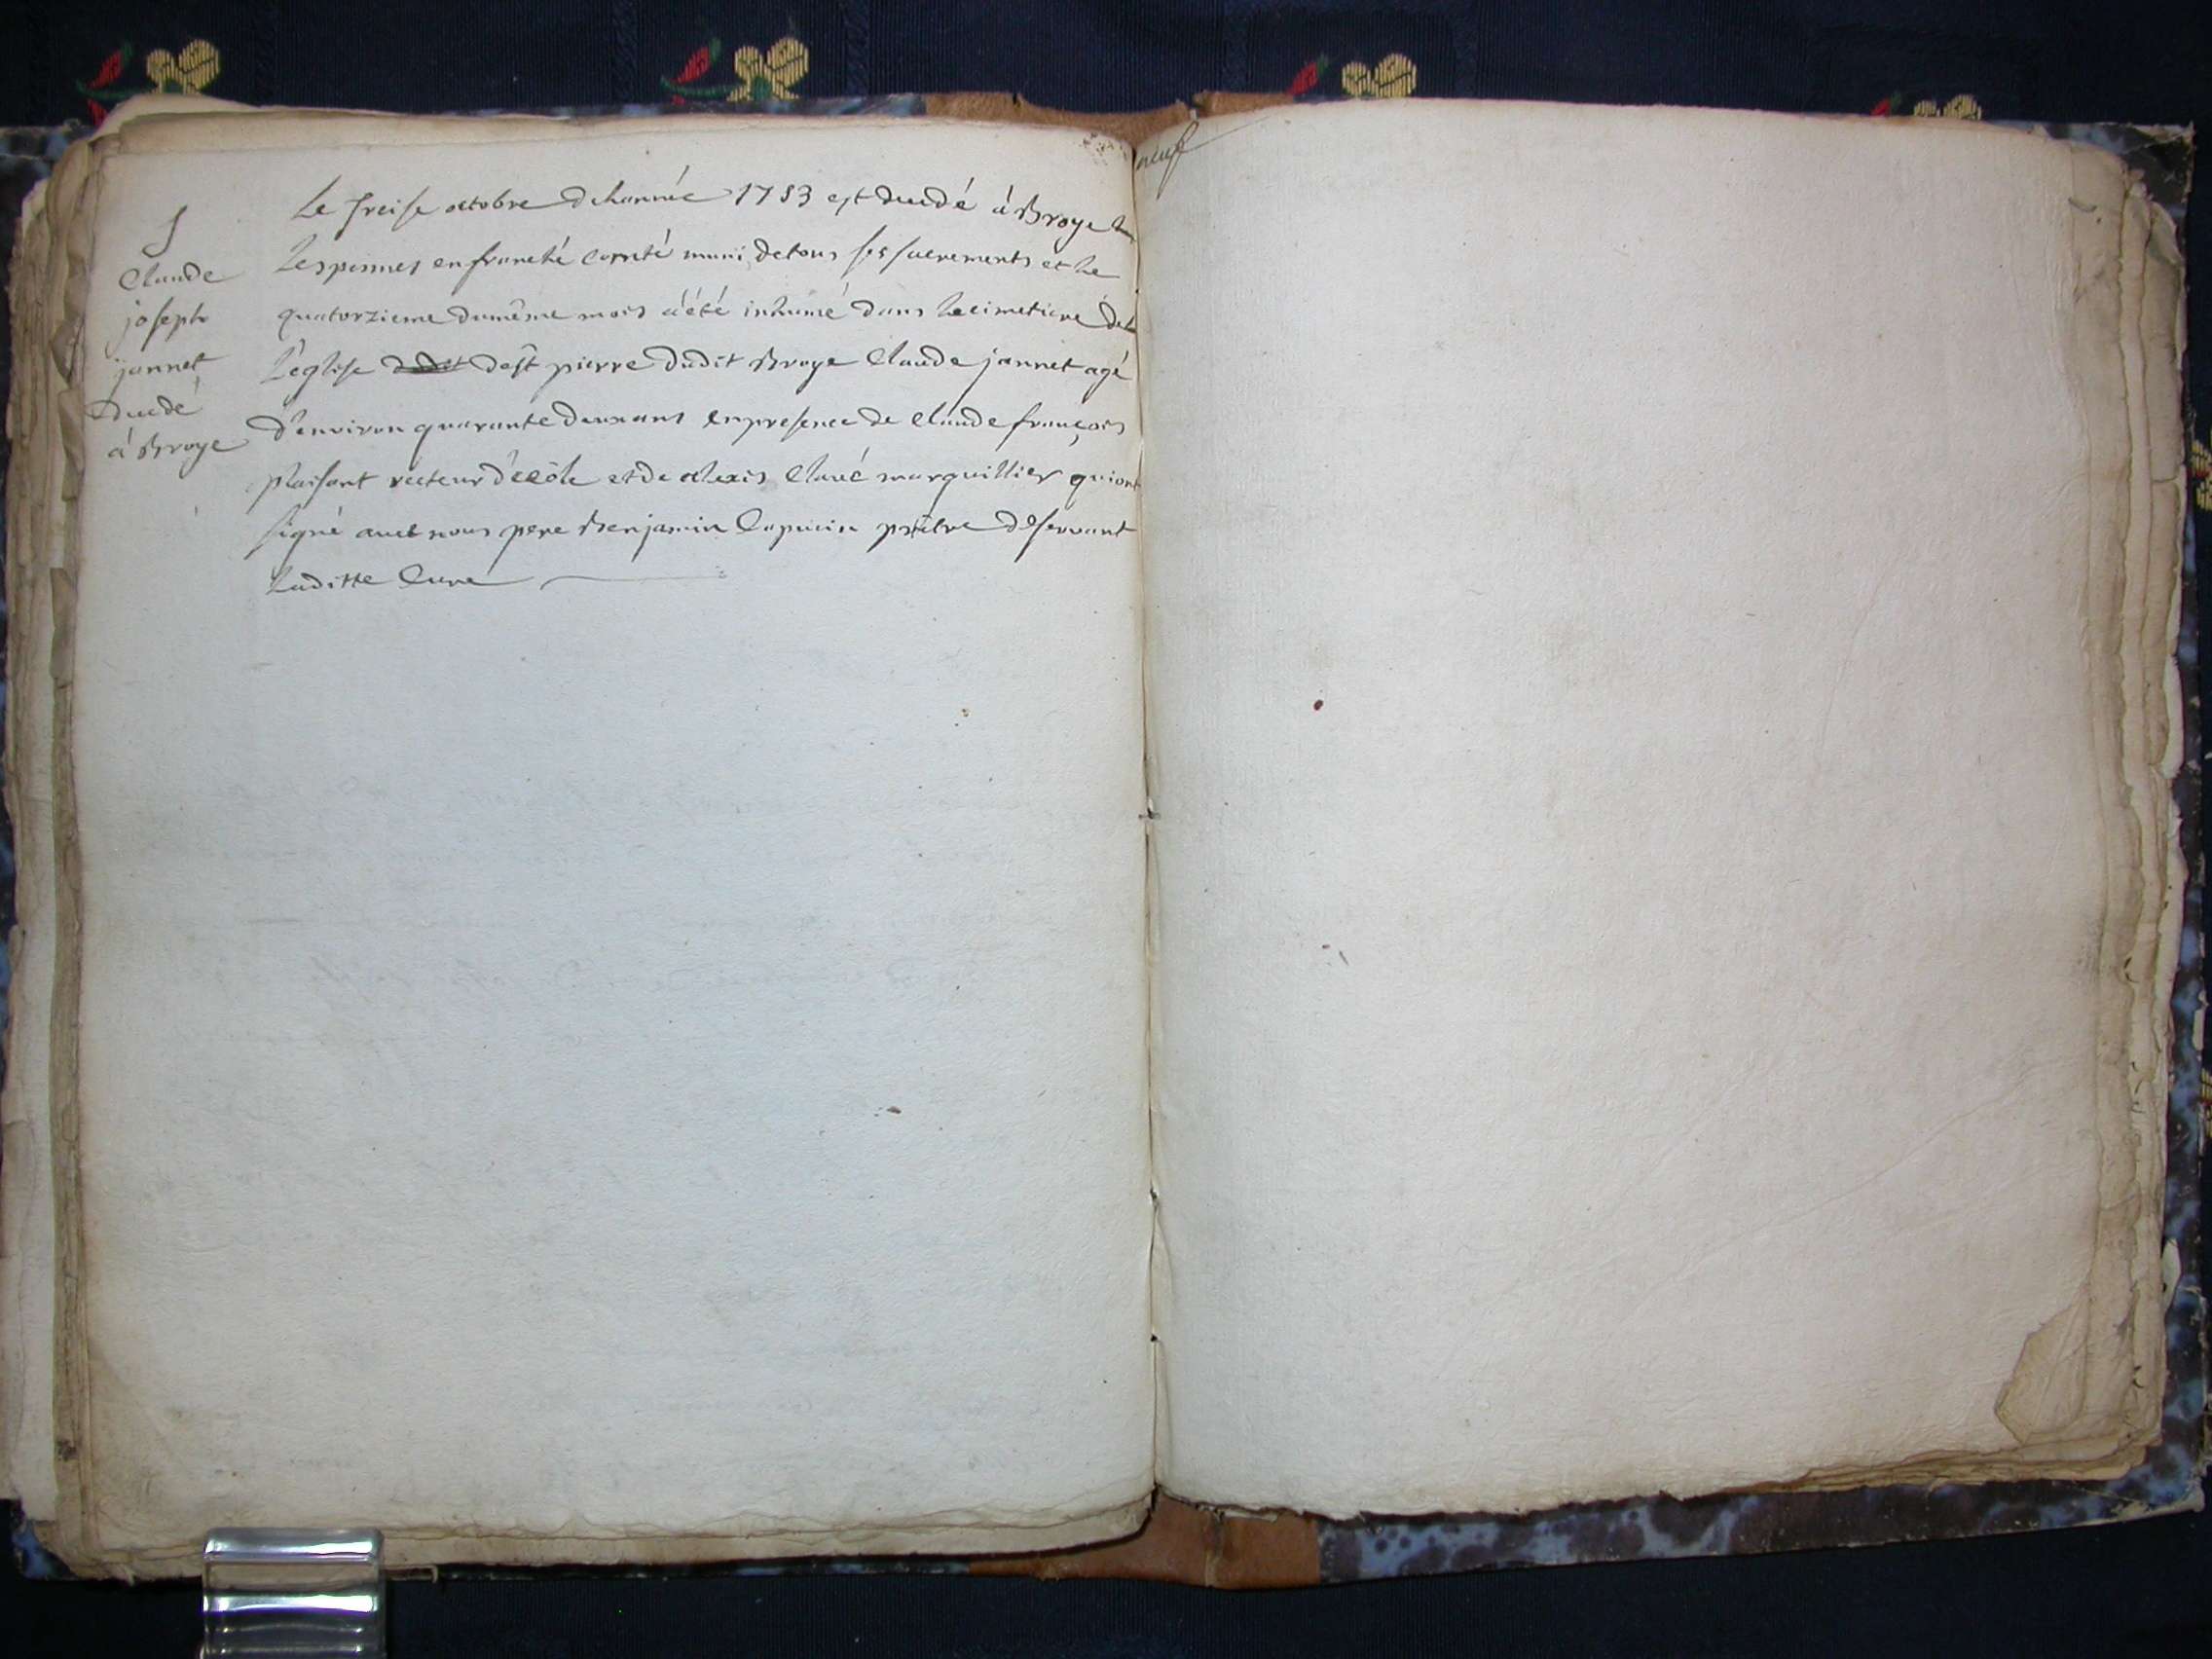 S
Claude
joseph
jannet
decédé
à Broye
Le treise octobre de Lannée 1783 est decedé à Broye les
Lespesmes en franché comté muni de tous ses sacrements et Le
quatorzieme du même mois a été inhumé dans Le cimetiere de
L'eglise de st pierre dudit Broye Claude jannet agé
d'environ quarante deux ans en presence de Claude françois
plaisant recteur d'ecôle et de alexis Claué marguillier qui ont
signé avec nous pere Benjamin Capucin prêtre desservant
Laditte Cure
neuf